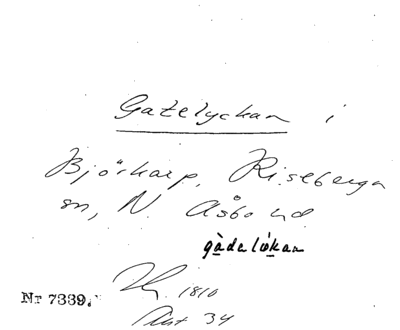 Gatelyckan i
Björkarp, Riseberga
sn, N. Åsbo hd.
gàdelökan
1810
Nr 7339.
Akt 34